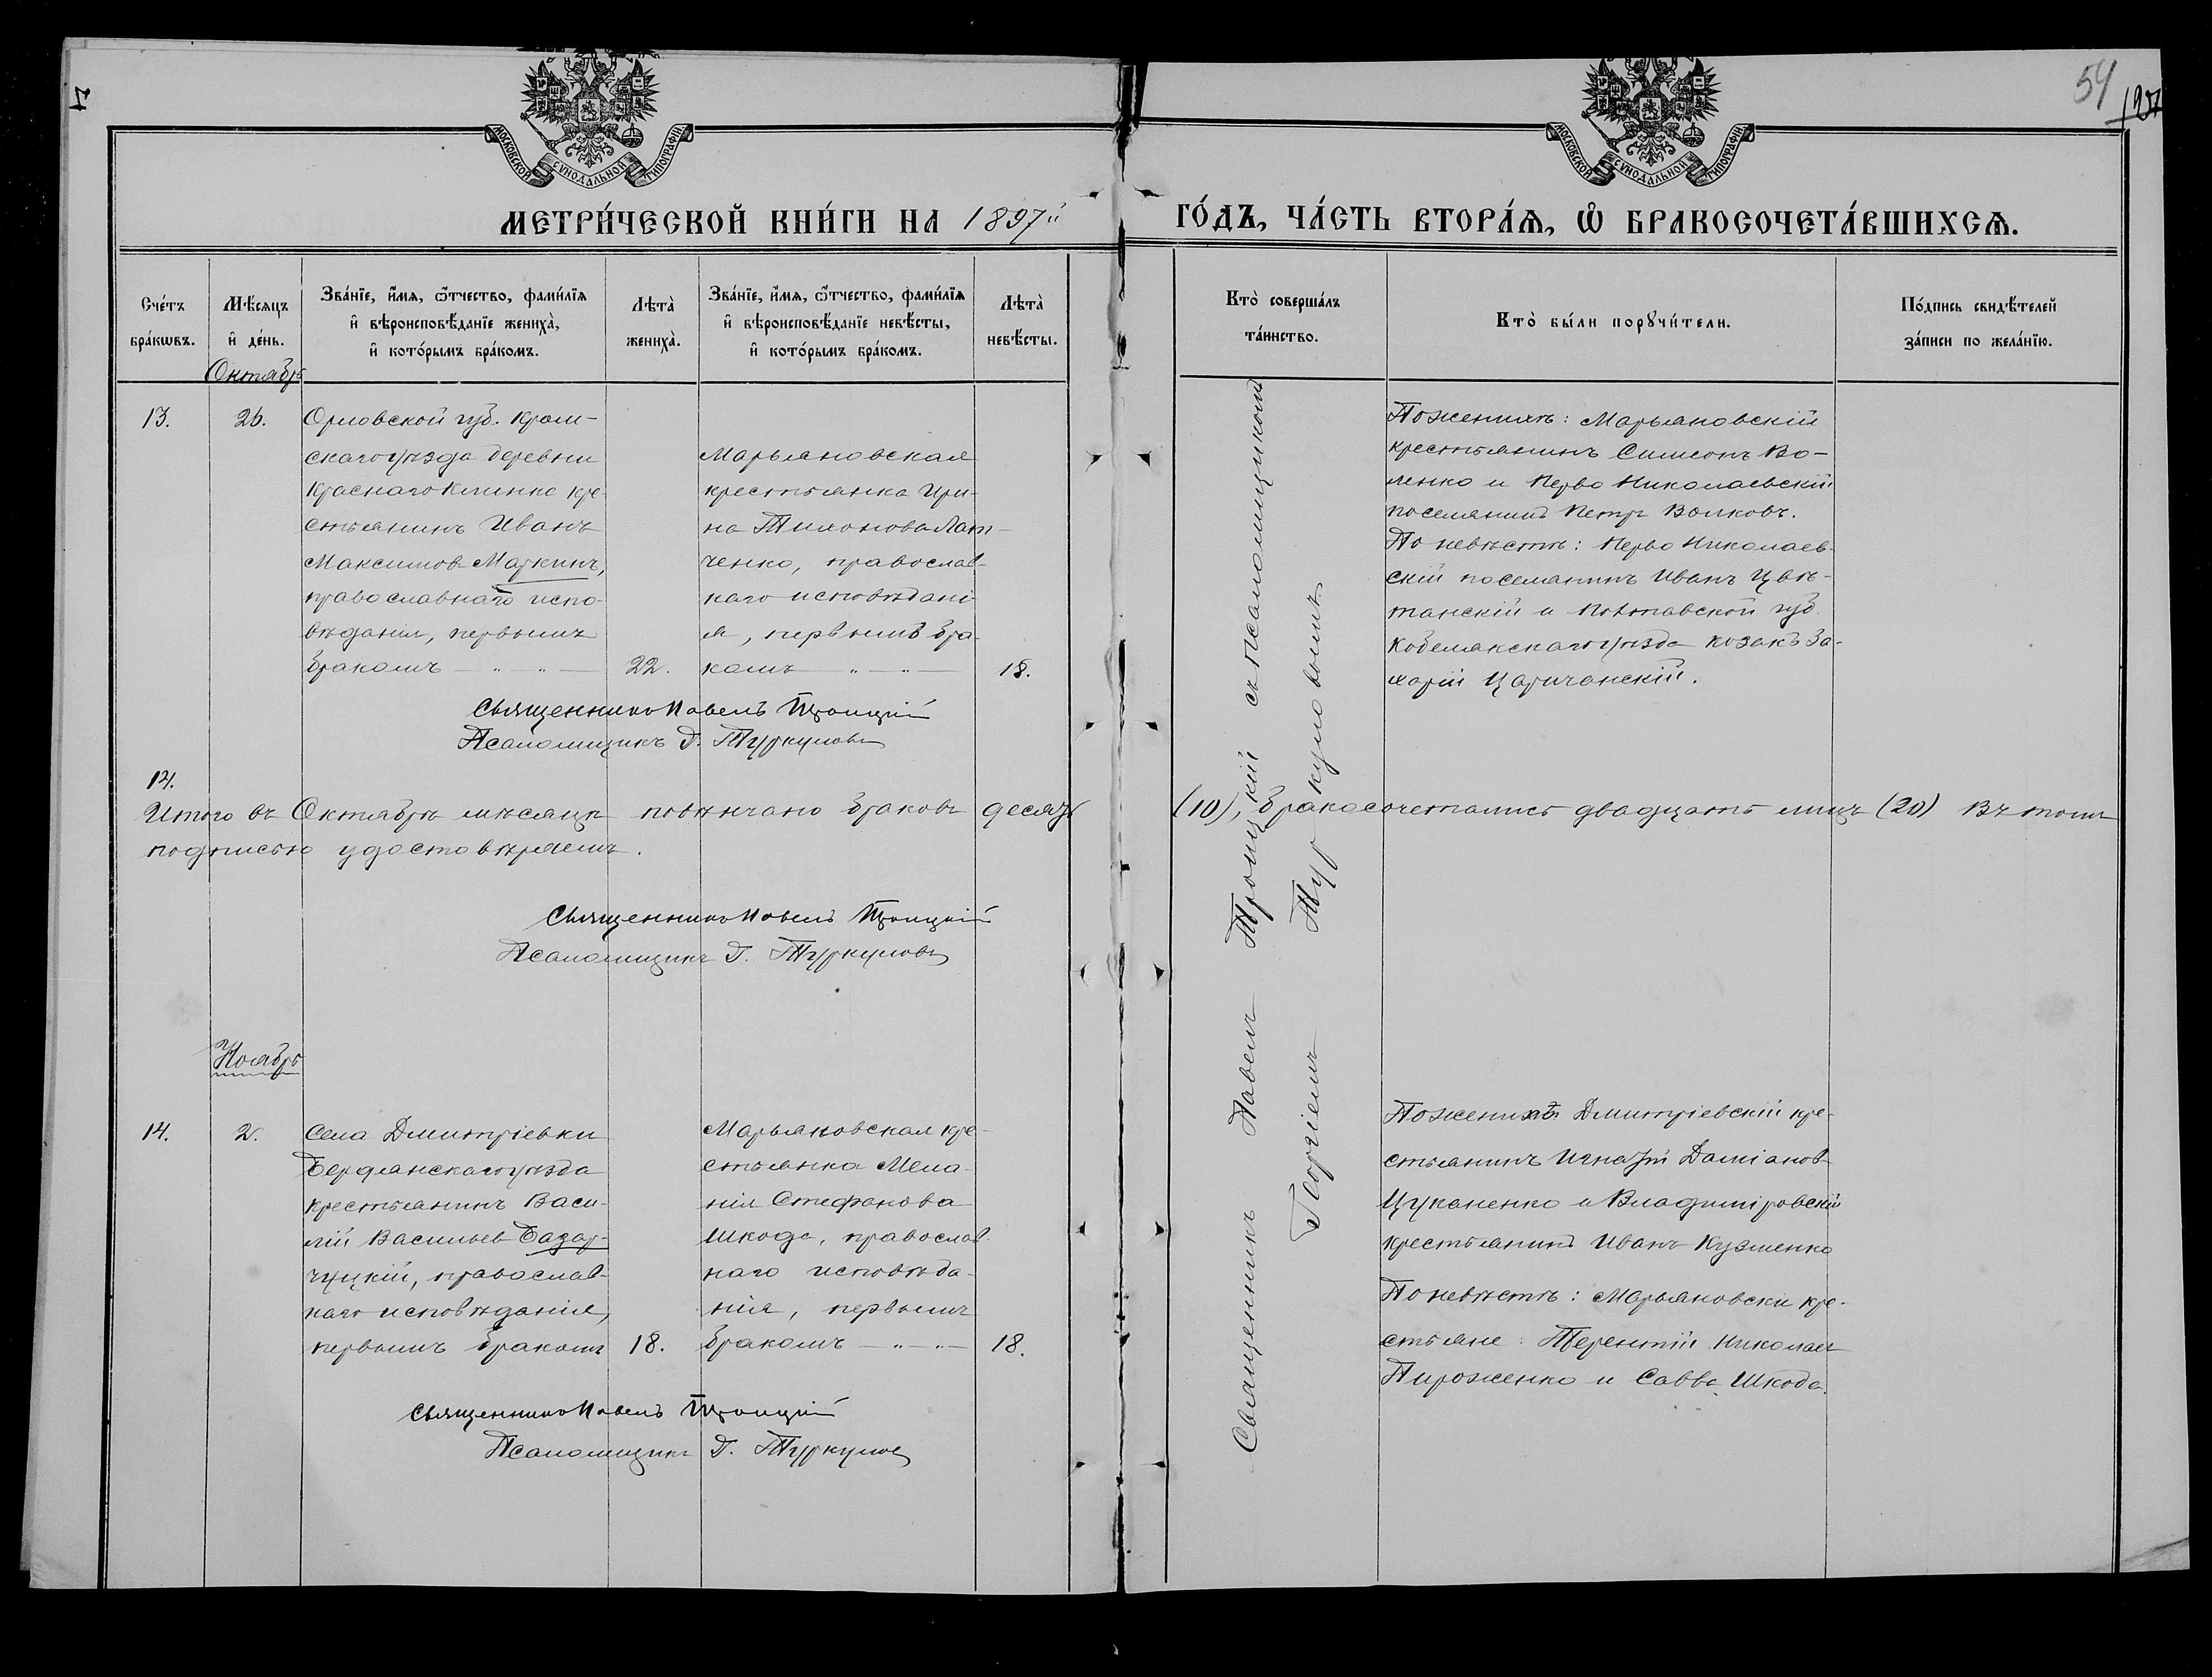 54
127
МОСКОВСКОЙ СѴНОДАЛЬНОЙ ТИПОГРАФІИ
МОСКОВСКОЙ СѴНОДАЛЬНОЙ ТИПОГРАФІИ
МЕТРИ́ЧЕСКОЙ КНИ́ГИ НА 1897й
ГО́ДЪ, ЧА́СТЬ ВТОРА́Ѧ, Ѡ҆ БРАКОСОЧЕТА́ВШИХСѦ.
Сче́тъ
бра́кѡвъ.
Мѣ́сяцъ
и҆ де́нь.
Зва́нїе, и҆́мя, ѻ҆́тчество, фами́лїя
и҆ вѣроисповѣ́данїе жениха̀,
и҆ кото́рымъ бра́комъ.
Лѣта̀
жениха̀.
Зва́нїе, и҆́мя, ѻ҆́тчество, фами́лїя
и҆ вѣроисповѣ́данїе невѣ́сты,
и҆ кото́рымъ бра́комъ.
Лѣта̀
невѣ́сты.
Кто̀ соверша́лъ
та́инство.
Кто̀ бы́ли порꙋчи́тели.
По́дпись свидѣ́телей
за́писи по жела́нїю.
Октябрь
13.
26.
Орловской губ. Кром-
скаго уѣзда деревни
Краснаго Клинка кре-
стьянинъ Иванъ
Максимовъ Маркинъ,
православнаго испо-
вѣданія, первымъ
бракомъ — „ — „ —
22.
Марьяновская
крестьянка Ири-
на Тихонова Лат-
ченко, православ-
наго исповѣдані-
я, первымъ бра-
комъ — „ — „ —
18.
Священникъ Павелъ Троицкій
Псаломщикъ Г. Туркуловъ
По женихѣ: Марьяновскій
крестьянинъ Симеонъ Во-
ленко и Перво Николаевскій
поселянинъ Петръ Волковъ.
По невѣстѣ: Перво Николаев-
скій поселянинъ Иванъ Цвѣ-
танскій и Полтавской губ.
Кобелякскаго уѣзда козакъ За-
харій Царичанскій.
14.
Итого въ Октябрѣ мѣсяцѣ повѣнчано браковъ десять (10), бракосочетались двадцать лицъ (20) Въ томъ
подписью удостовѣряемъ.
Священникъ Павелъ Троицкій
Псаломщикъ Г. Туркуловъ
Ноябрь
14.
2.
Села Дмитріевки
Бердянскаго уѣзда
крестьянинъ Васи-
лій Васильевъ Базар-
чуцкій, православ-
наго исповѣданія,
первымъ бракомъ
18.
Марьяновская кре-
стьянка Мела-
нія Стефанова
Шкода, православ-
наго исповѣда-
нія, первымъ
бракомъ — „ — „ —
18.
Священникъ Павелъ Троицкій
Псаломщикъ Г. Туркулов
Священникъ Павелъ Троицкій съ псаломщикомъ
Георгіемъ Туркуловымъ.
По женихѣ Дмитріевскій кре-
стьянинъ Игнатій Даміановъ
Цуканенко и Владиміровскій
крестьянинъ Иванъ Кузменко
По невѣстѣ: Марьяновски кре-
стьяне: Терентій Николаев
Пироженко и Савва Шкода.